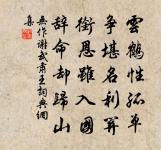 雲鶴性孤單
爭堪名利關
銜恩雖入國
辭命却歸山
無作謝武肅王詞典網
集